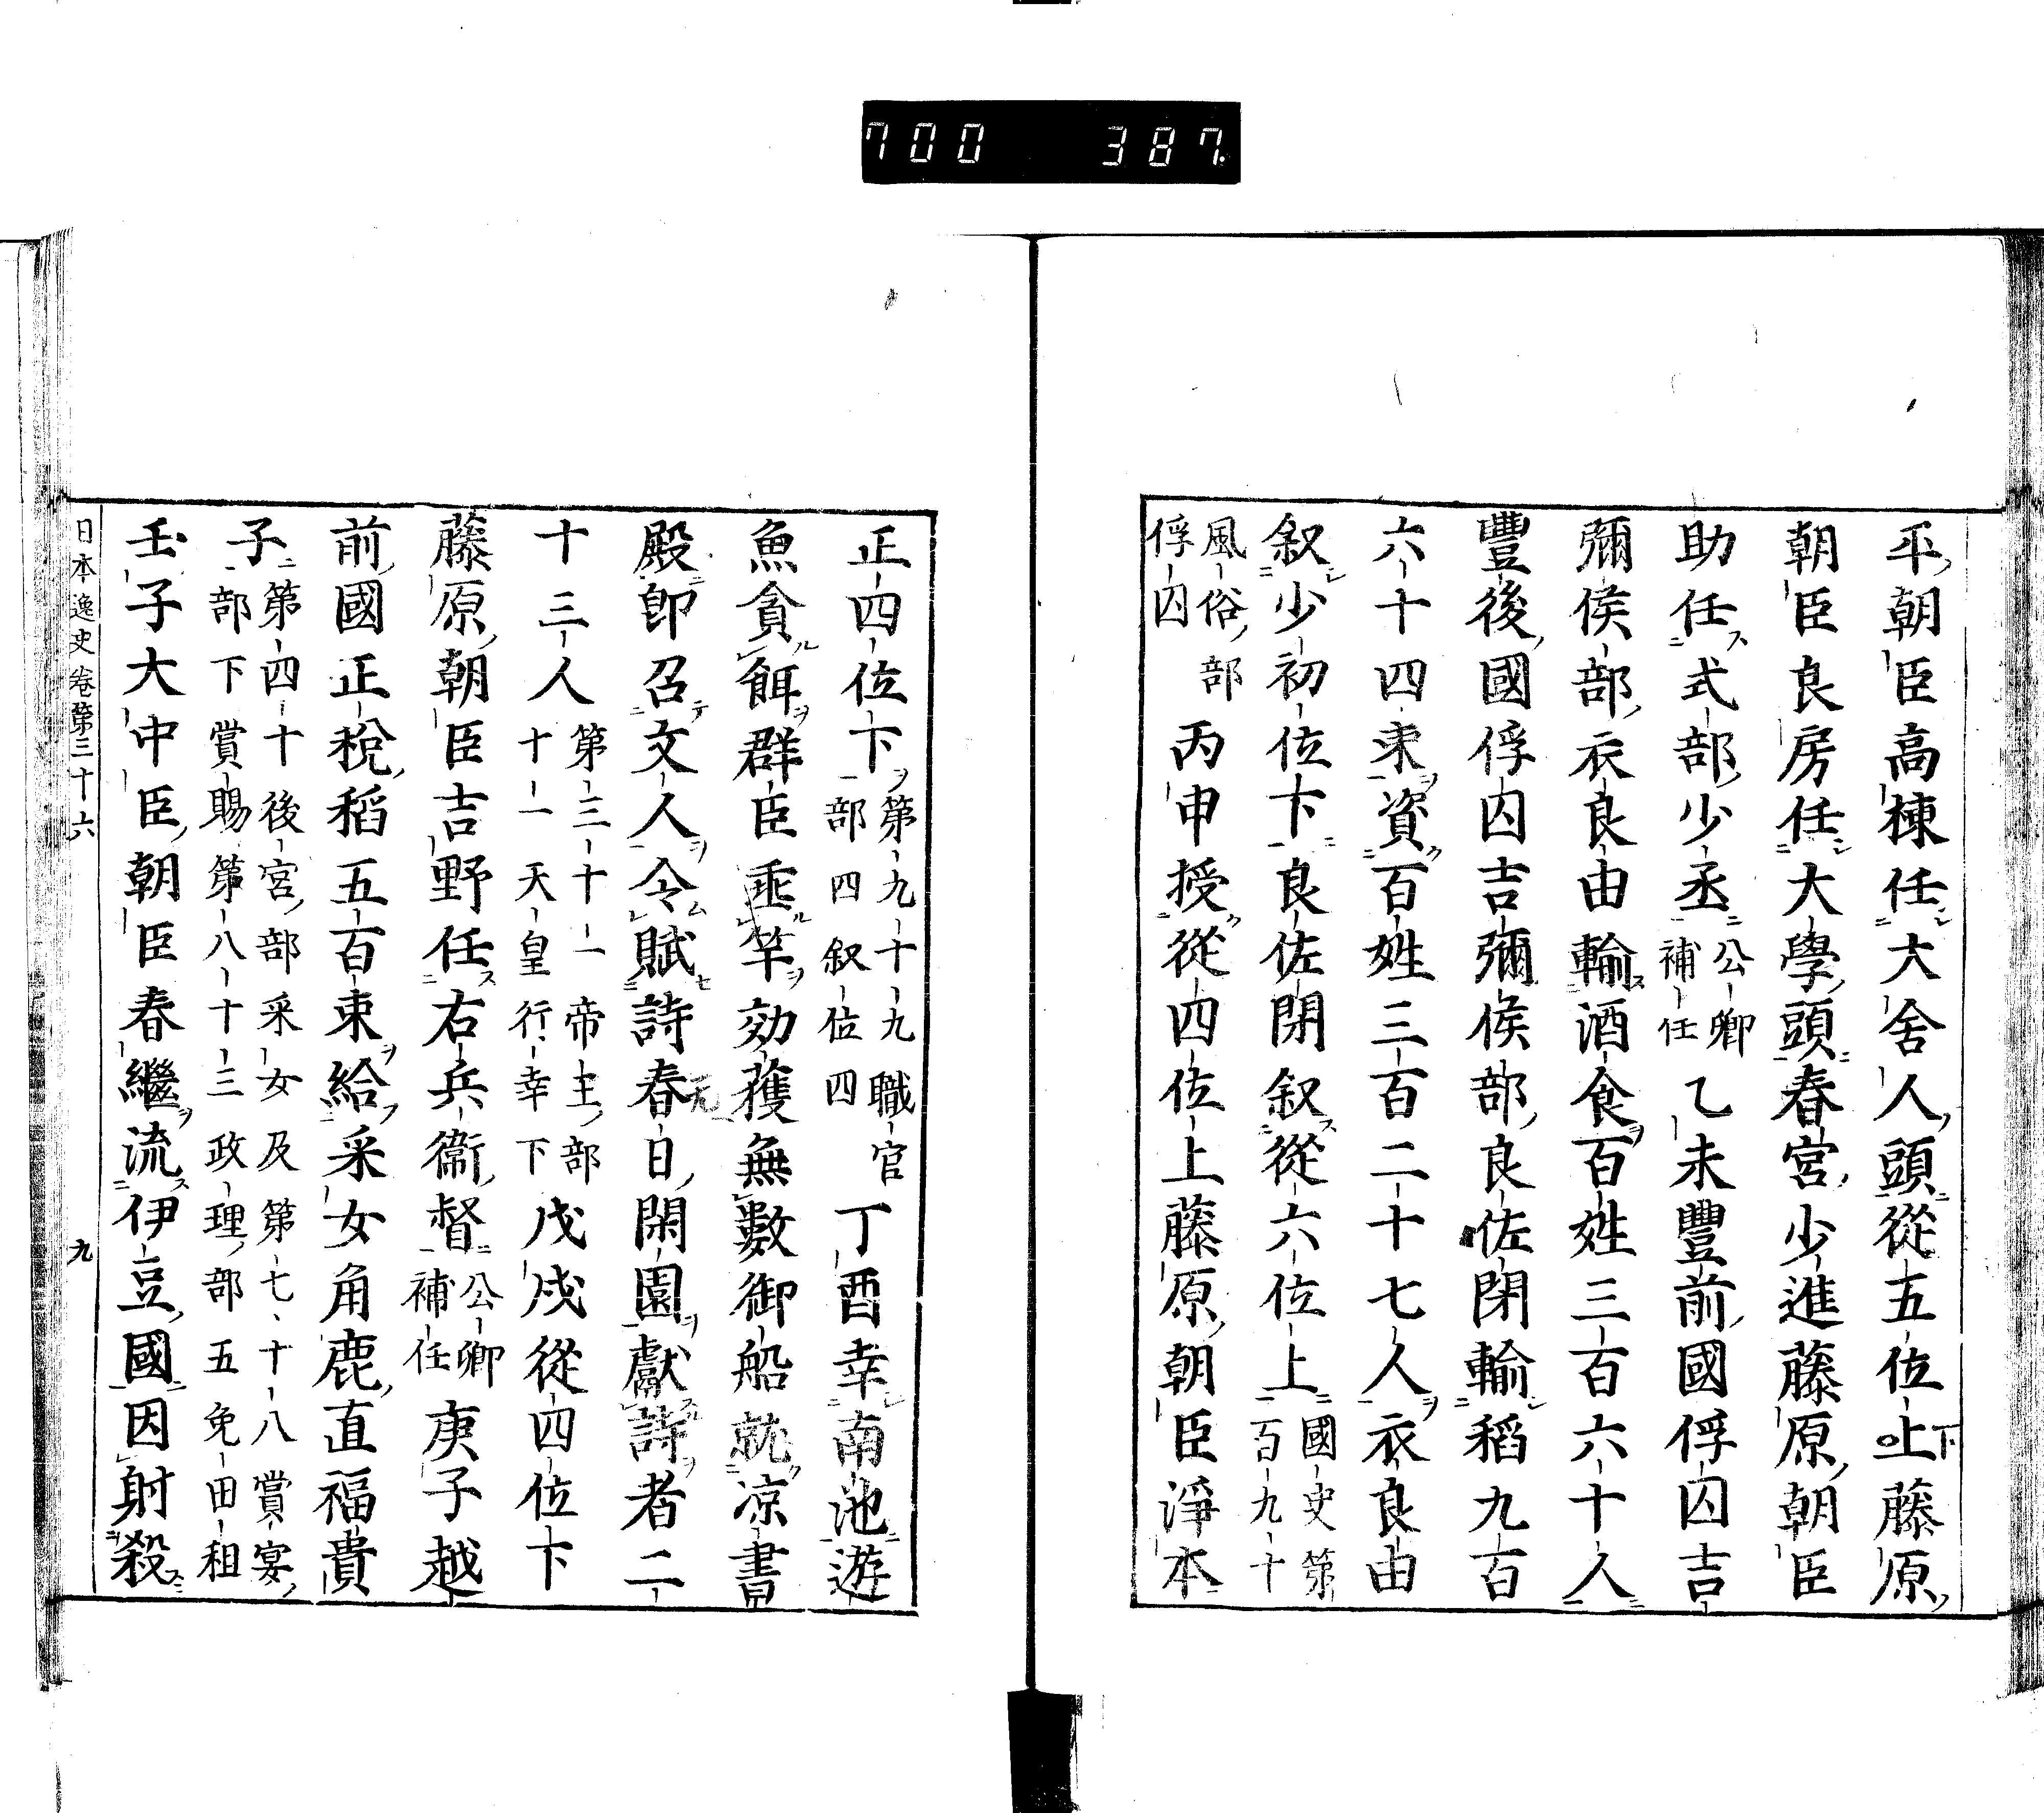 700 387.
平朝臣高棟任大舍人頭從五位上下藤原
朝臣良房任大學頭春宮少進藤原朝臣
助任式部少丞公卿補任乙未豐前國俘囚吉
彌侯部衣良由輸酒食百姓三百六十人
豐後國俘囚吉彌侯部良佐閉輸稻九百
六十四束資百姓三百二十七人衣良由
叙少初位下良佐閉叙從六位上國史第百九十
風俗部俘囚丙申授從四位上藤原朝臣淨本
正四位下第九十九職官部四叙位四丁酉幸南池遊
魚貪餌群臣垂竿効獲無數御船就凉書
殿即召文人令賦詩春日閑園獻詩者二
十三人第三十一帝王部十一天皇行幸下戊戌從四位下
藤原朝臣吉野任右兵衞督公卿補任庚子越
前國正稅稻五百束給采女角鹿直福貴
子第四十後宮部采女及第七十八賞宴部下賞賜第八十三政理部五免田租
壬子大中臣朝臣春繼流伊豆國因射殺
日本逸史卷第三十六 九